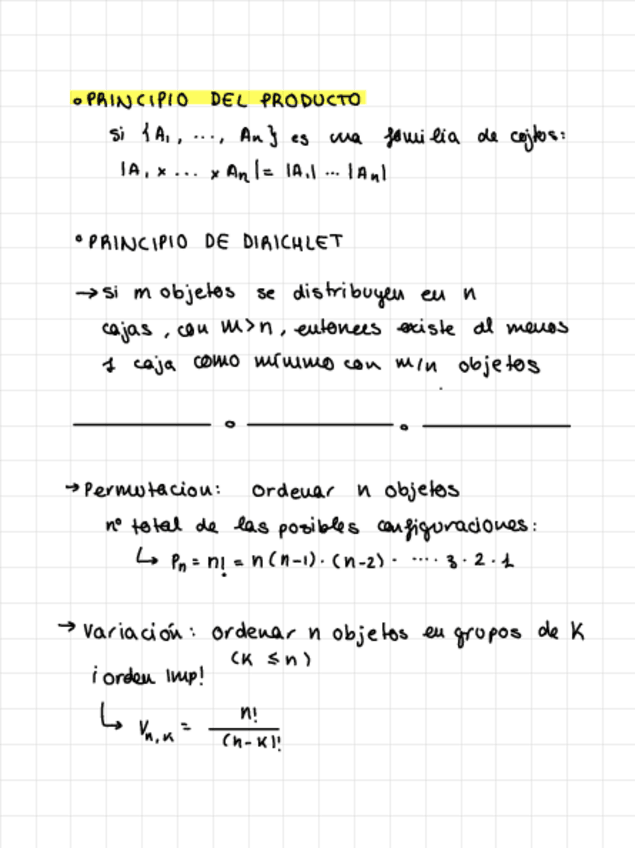 • PRINCIPIO DEL PRODUCTO
si {A₁, ..., Aₙ} es una familia de cojtos:
|A₁ x ... x Aₙ| = |A₁| ... |Aₙ|
• PRINCIPIO DE DIRICHLET
→ si m objetos se distribuyen en n
cajas, con m>n, entonces existe al menos
1 caja como mínimo con m/n objetos
→ Permutacion: ordenar n objetos
nº total de las posibles configuraciones:
↳ Pₙ = n! = n(n-1)·(n-2)· ···· 3·2·1
→ Variación: ordenar n objetos en grupos de K
(K ≤ n)
¡orden imp!
↳ Vₙ,ₖ = n! / (n-K)!